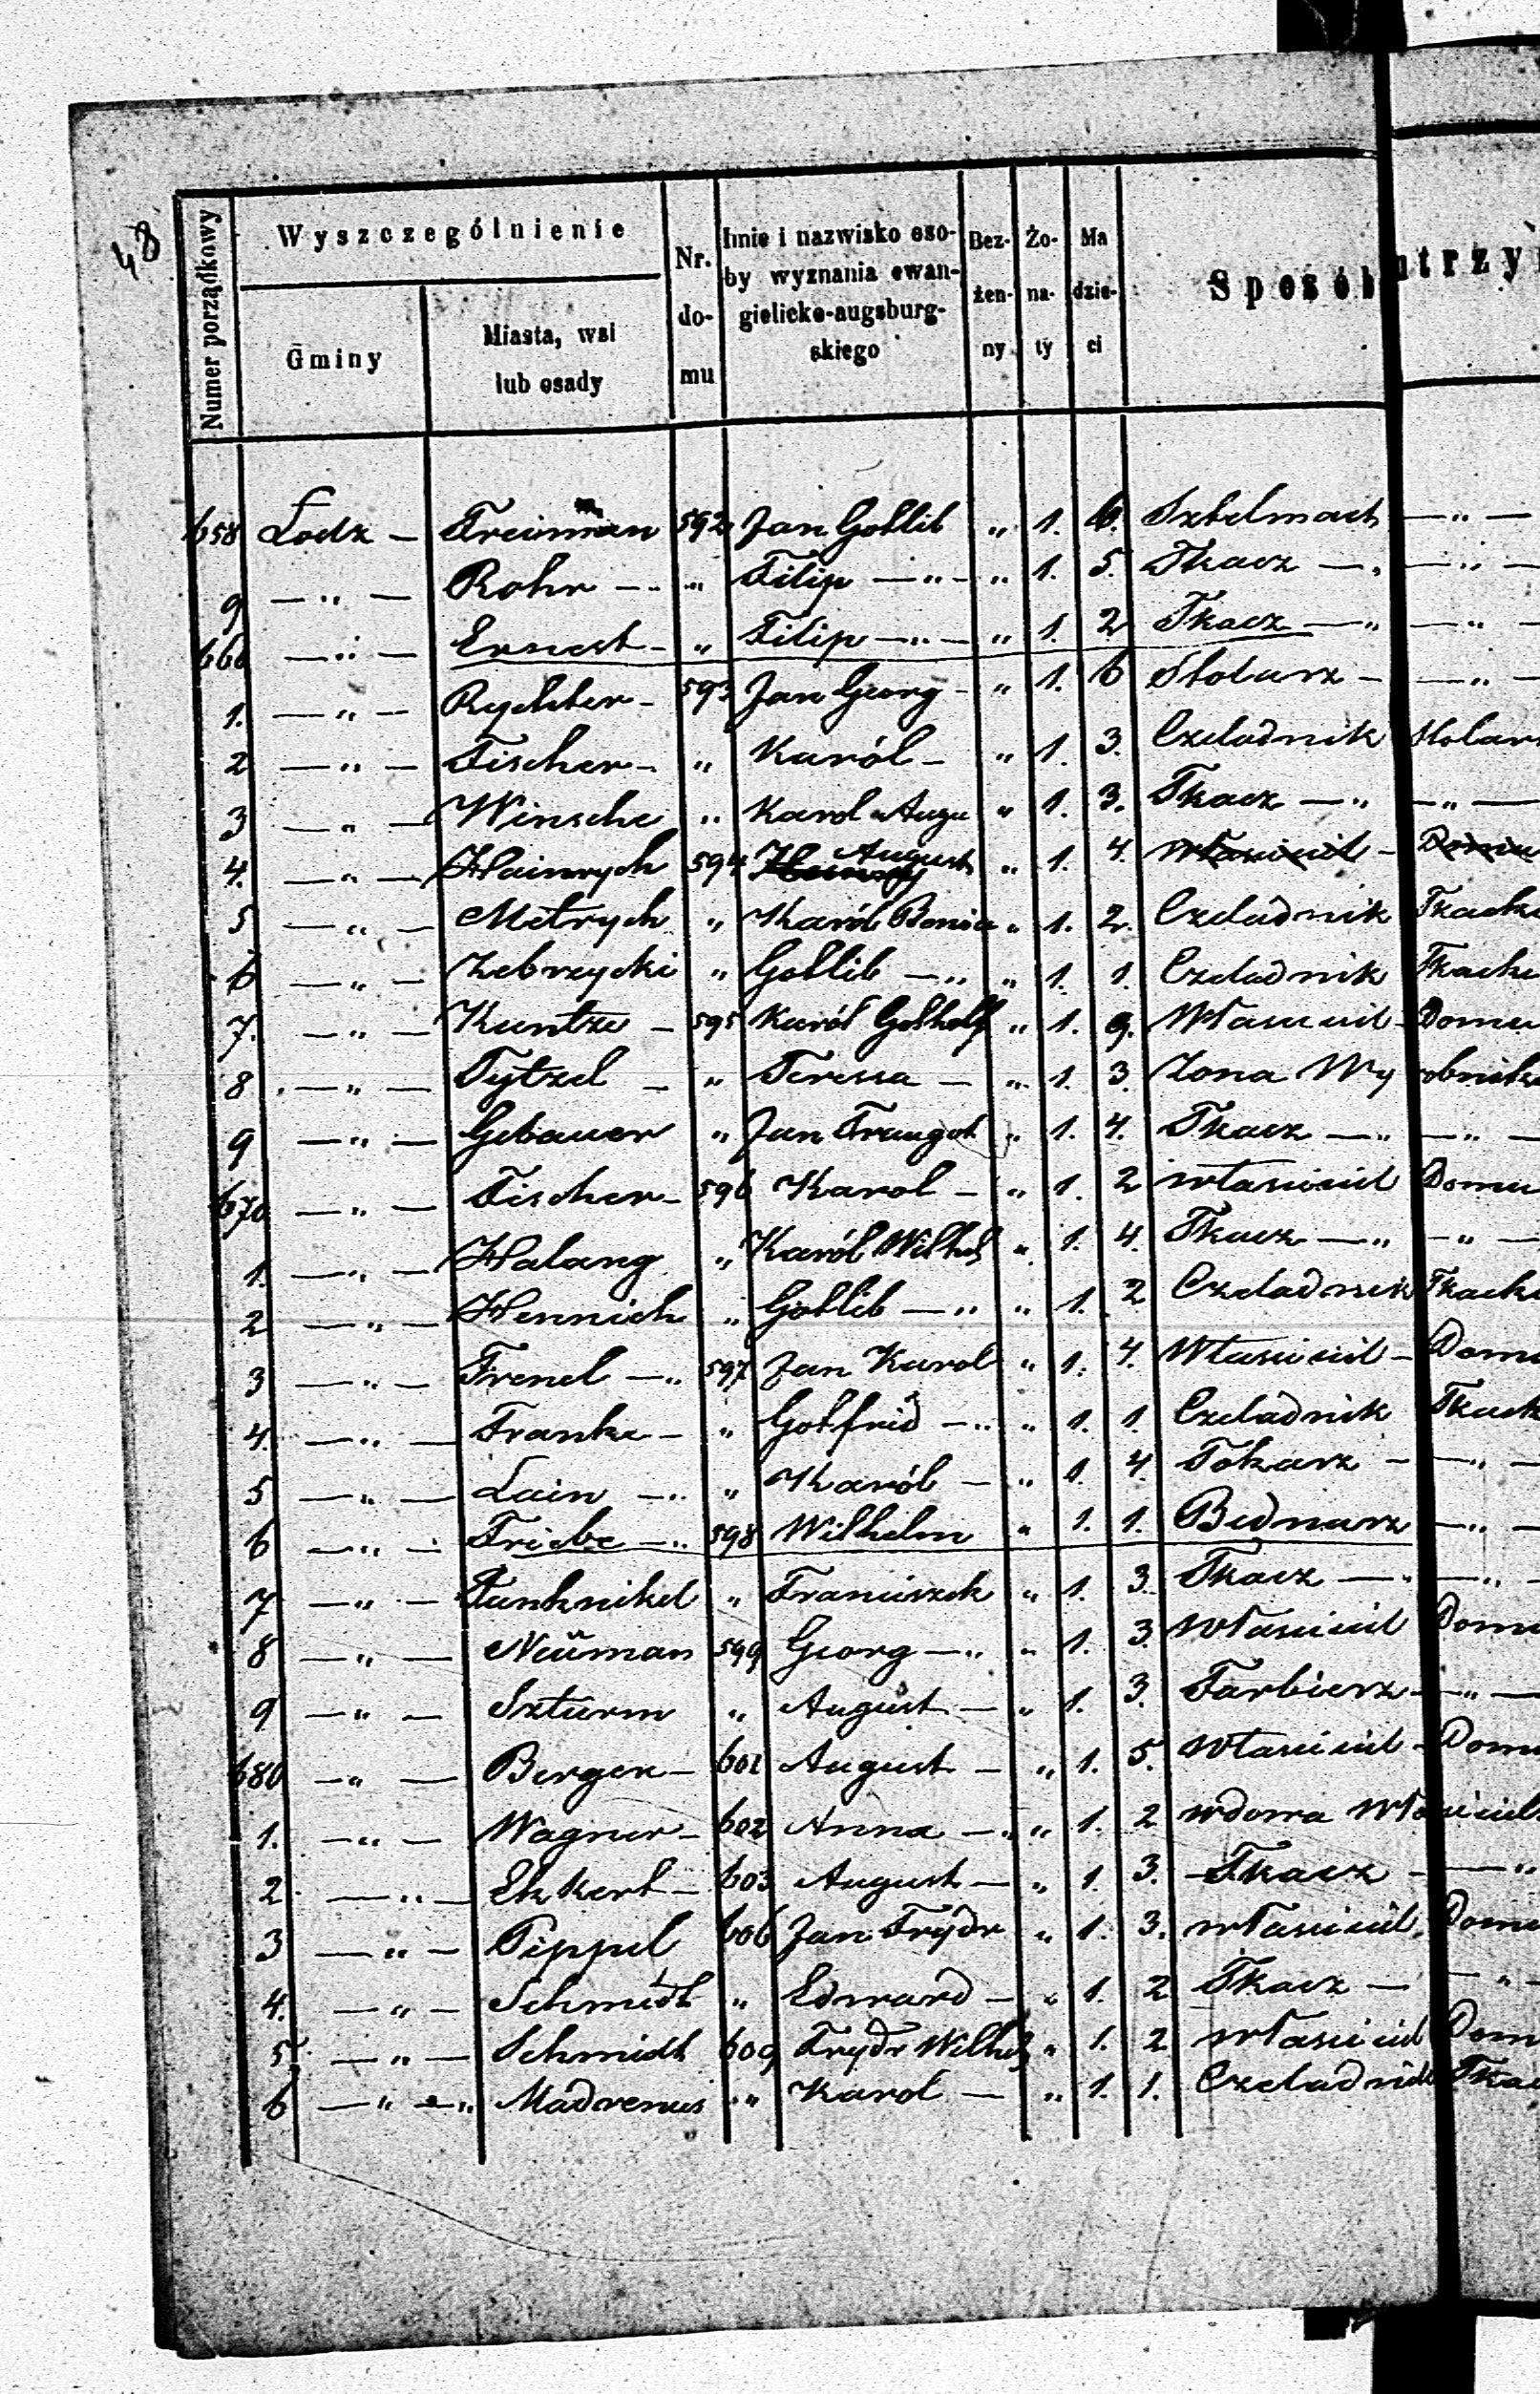 48
Numer porządkowy
Wyszczególnienie
Gminy
Miasta, wsi lub osady
Nr. do- mu
Imie i nazwisko oso- by wyznania ewan- gielicko-augsburg- skiego
Bez- żen- ny
Żo- na- ty
Ma dzie- ci
Sposób utrzy
658 Lodz — Freiman 592 Jan Gottlib " 1. 6. Sztelmach — " —
9 — " — Rohr — " " Filip — " — " 1. 5. Tkacz — " — " —
660 — " — Ernest — " Filip — " — " 1. 2 Tkacz — " — " —
1. — " — Rychter — 593 Jan Georg — " 1. 6 Stolarz — — " —
2 — " — Fischer — " Karól — " 1. 3. Czeladnik Stolar
3 — " — Winsche " Karol Augu " 1. 3. Tkacz — " — " —
4. — " — Hainrych 594 August " 1. 4. Własciciel — Domu
5 — " — Metrych " Karól " 1. 2. Czeladnik Tkack
6 — " — Zebrzycki " Gottlib — " " 1. 1. Czeladnik Tkack
7. — " — Kuntze — 595 Karól Gotholf " 1. 9. Własciciel — Domu
8 — " — Tytzel — " Teressa — " 1. 3. Zona Wy robnika
9 — " — Gebauer " Jan Traugot " 1. 4. Tkacz — " — " —
670 — " — Fischer — 596 Karol — " 1. 2 własciciel Domu
1. — " — Halang " Karól Wilhel " 1. 4. Tkacz — " — " —
2 — " — Hennich " Gottlib — " " 1. 2 Czeladnik Tkack
3 — " — Frenel — " 597 Jan Karol " 1. 4. Własciciel — Domu
4. — " — Franke — " Gotfrid — " " 1. 1. Czeladnik Tkack
5 — " — Lain — " " Karól — " 1. 4. Tokarz — — " —
6 — " — Friebe — " 598 Wilhelm " 1. 1. Bednarz — " —
7 — " — Tanknikel " Franciszek " 1. 3. Tkacz — " — " —
8 — " — Neüman 599 Georg — " " 1. 3. własciciel Domu
9 — " — Szturm " August — " 1. 3. Farbierz — " —
680 — " — Berger — 601 August — " 1. 5. własciciel — Domu
1. — " — Wagner — 602 Anna — " " 1. 2 wdowa Własciciel
2 — " — Ekkert — 603 August — " 1. 3. Tkacz — — "
3 — " — Pippel 606 Jan Frydr " 1. 3. własciciel Domu
4. — " — Schmidt " Edward — " 1. 2 Tkacz — — " —
5 — " — Schmidt 609 Frydr Wilhel " 1. 2 własciciel Dom
6 — " — " Madrenus " Karol — " 1. 1. Czeladnik Tka